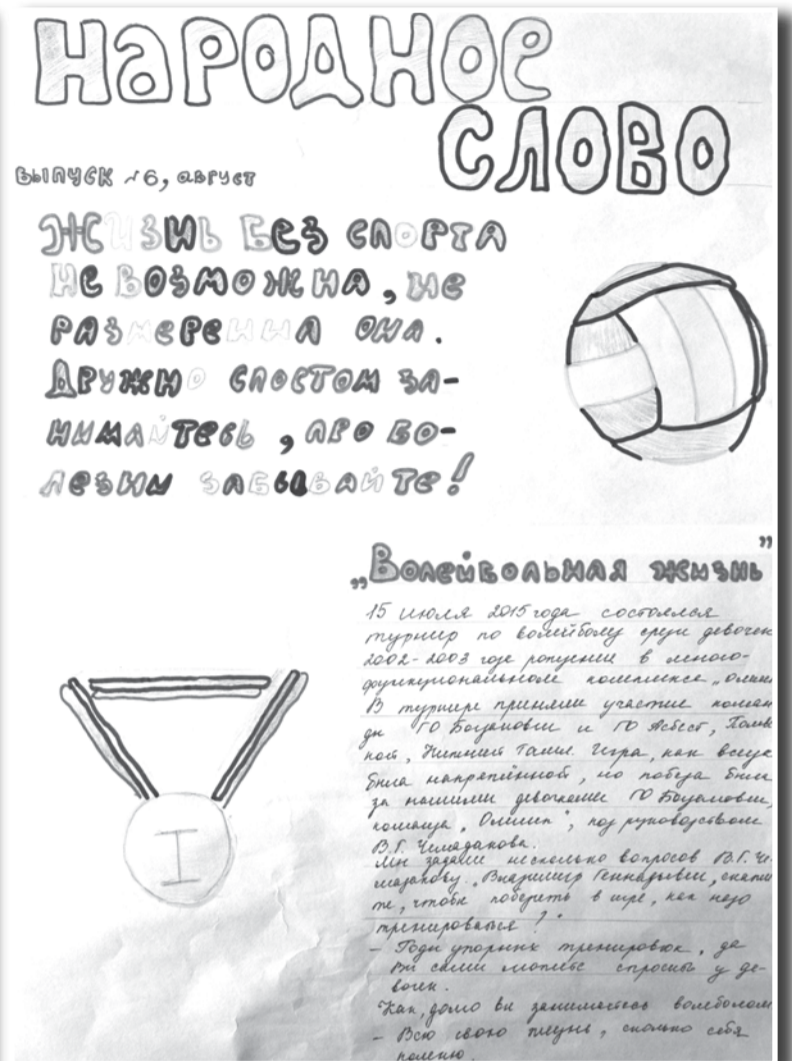 Народное
слово
Выпуск №6, август
Жизнь без спорта
не возможна, не
размеренна она.
Дружно спостом за-
нимайтесь, про бо-
лезни забывайте!
„Волейбольная жизнь”
15 июля 2015 года состоялся
турнир по волейболу среди девочек
2002-2003 года рождения в много-
функциональном комплексе „Олимп
В турнире приняли участие коман
ды ГО Богданович и ГО Асбест,
ной, Нижний Тагил. Игра, как всегда
была напряжённой, но победа была
за нашими девочками ГО Богданович,
команда „Олимп", под руководством
В.Г. Чемаданова.
Мы задали несколько вопросов В.Г. Че-
маданову. „Владимир Геннадьевич, скажи
те, чтобы победить в игре, как надо
тренироваться?"
- Годы упорных тренировок, да
вы сами можете спросить у де-
вочек.
Как долго вы занимаетесь волеболом
- Всю свою жизнь, сколько себя
помню.
I